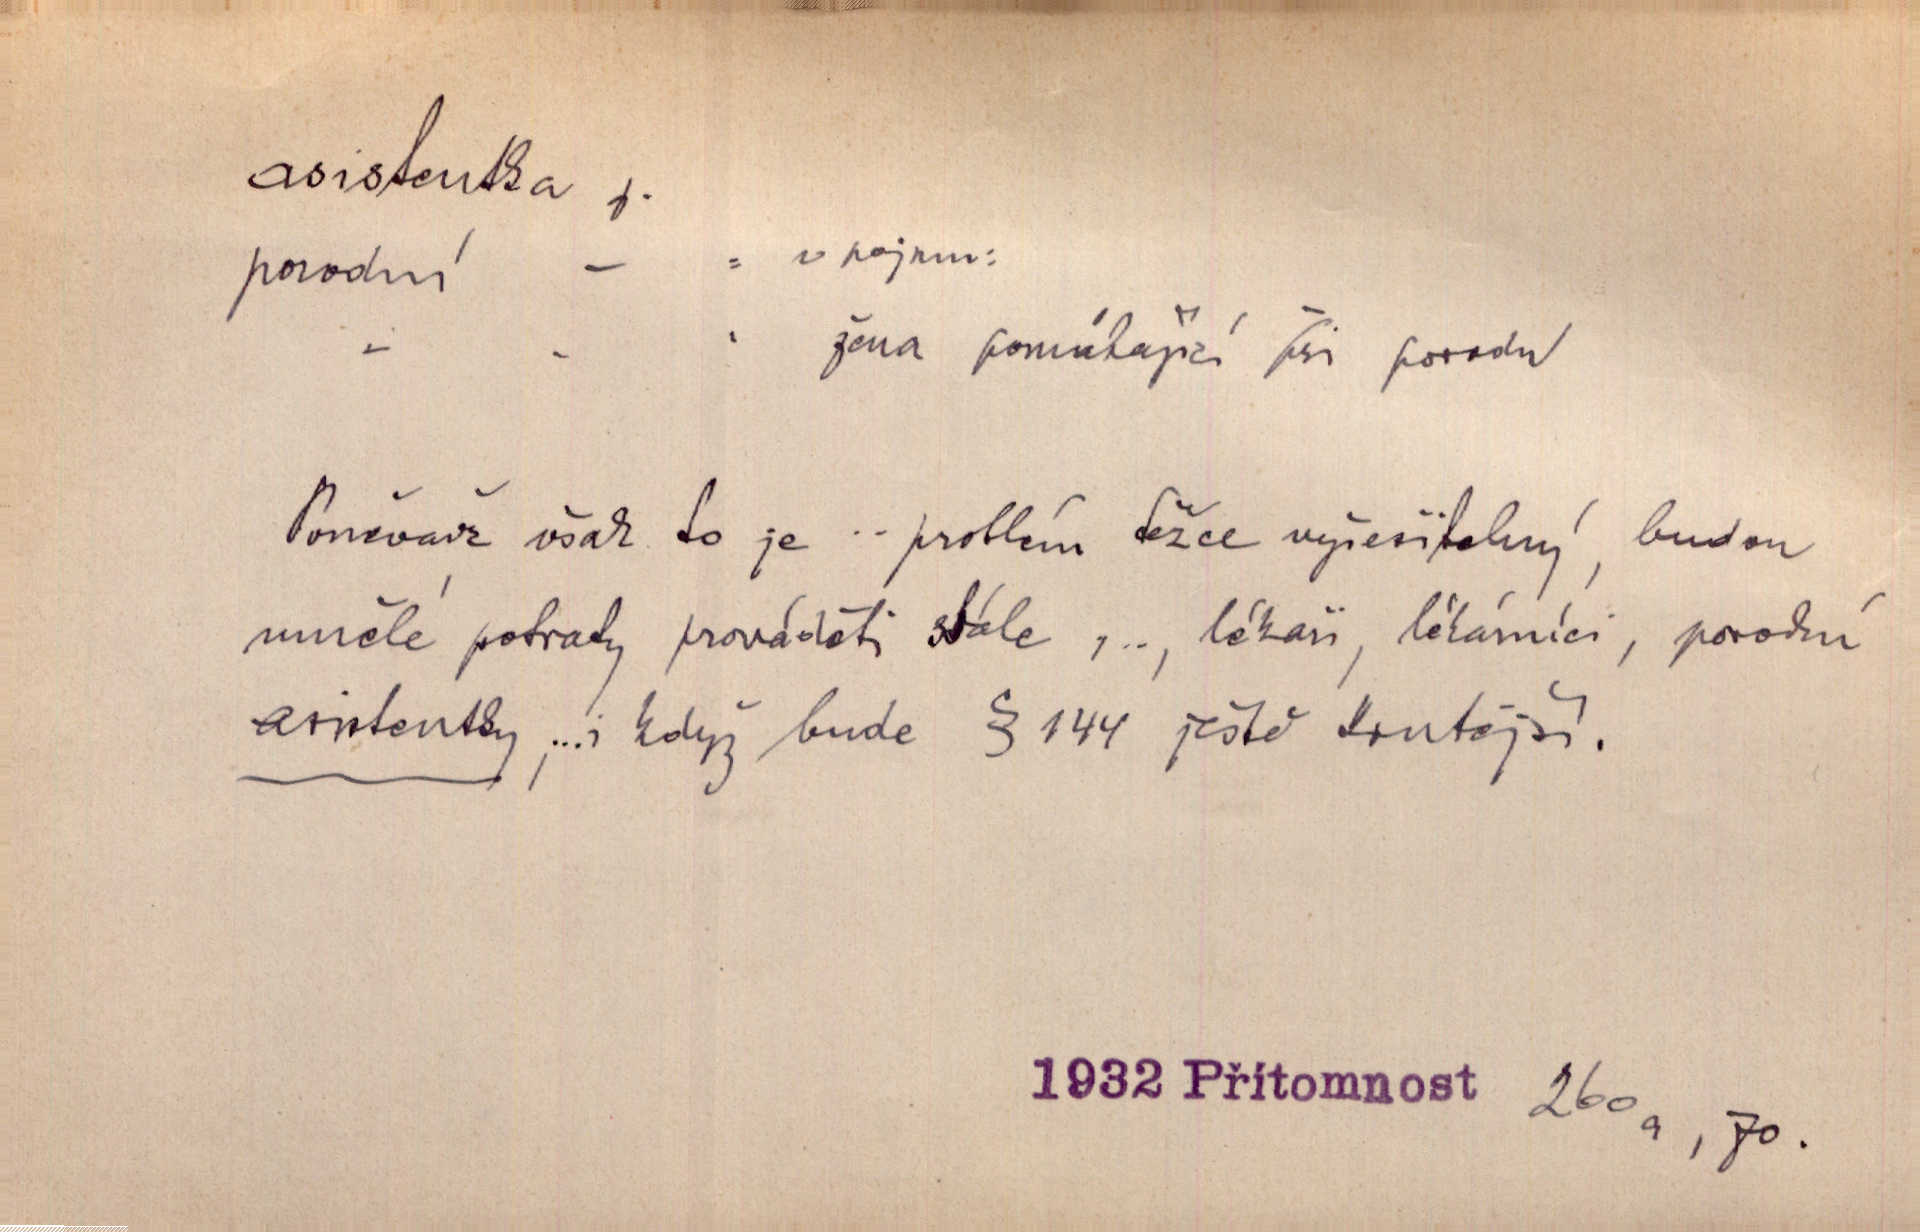 asistentka f.
porodní – = v pojmu:
" - ' žena pomáhající při porodu
Poněvadž však to je .. problém těžce vyřešitelný, budou
umělé potraty prováděti stále , .., lékaři, lékárníci, porodní
asistentky, ... i když bude § 144 ještě krutější.
1932 Přítomnost 260a, 70.